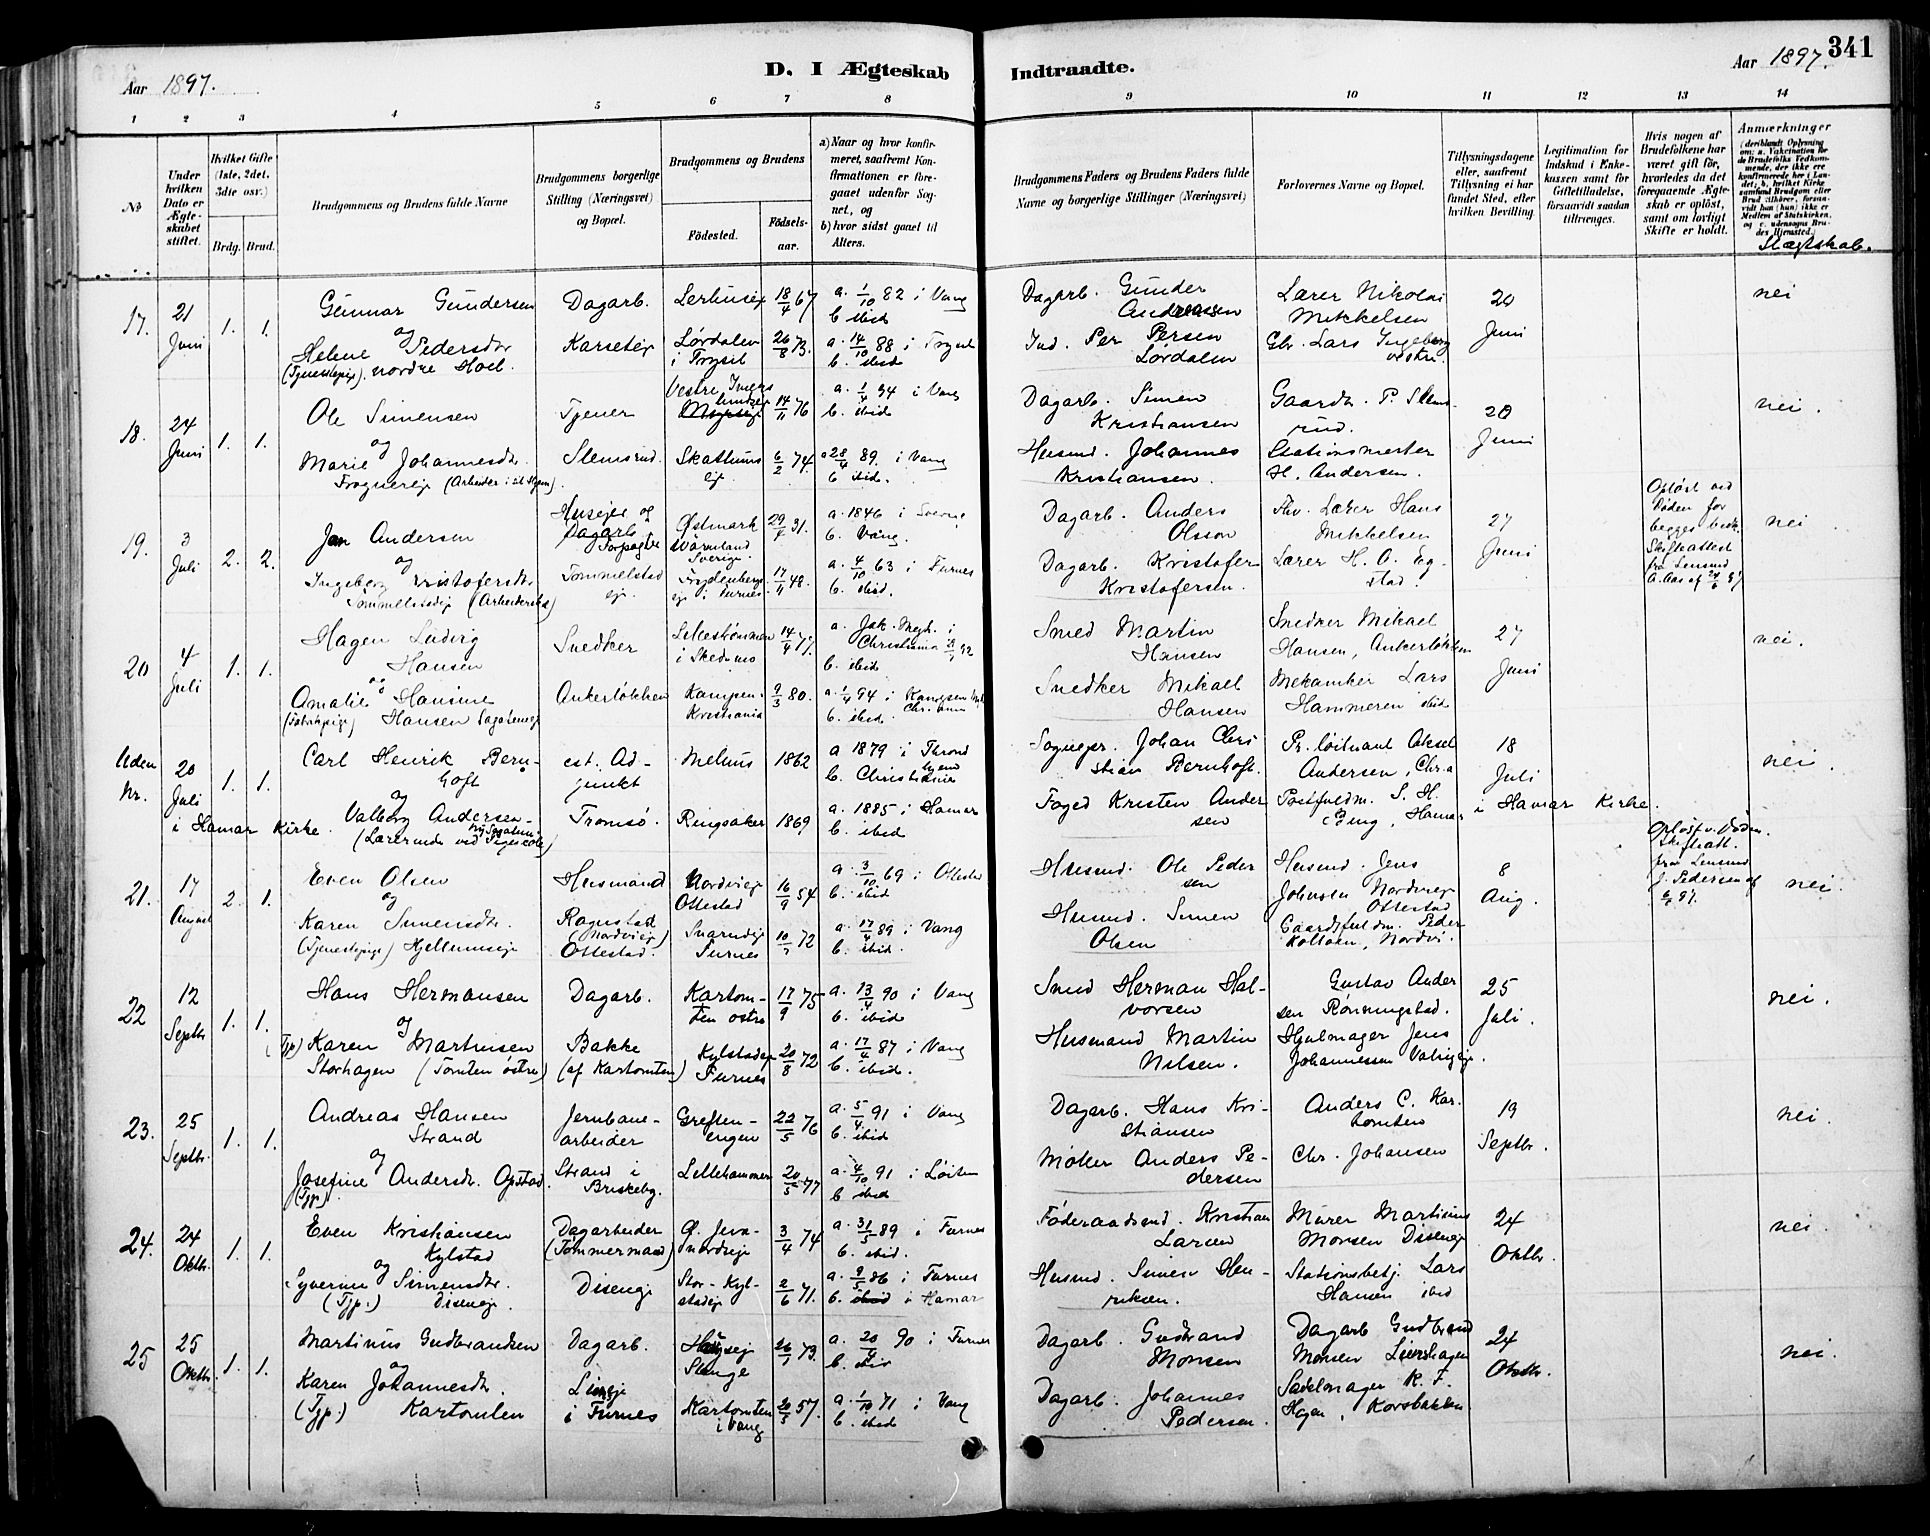 341
Aar 1897.
D. I Ægteskab Indtraadte.
Aar 1897.
1 2 3 4 5 6 7 8 9 10 11 12 13 14
No
Under hvilken Dato er Ægteskabet stiftet.
Hvilket Gifte (1ste, 2det, 3die osv.)
Brdg. Brud.
Brudgommens og Brudens fulde Navne
Brudgommens borgerlige Stilling (Næringsvei) og Bopæl.
Brudgommens og Brudens
Fødested.
Fødselsaar.
a) Naar og hvor konfirmeret, saafremt Konfirmationen er foregaaet udenfor Sognet, og
b) hvor sidst gaaet til Alters.
Brudgommens Faders og Brudens Faders fulde Navne og borgerlige Stillinger (Næringsvei)
Forlovernes Navne og Bopæl.
Tillysningsdagene eller, saafremt Tillysning ei har fundet Sted, efter hvilken Bevilling.
Legitimation for Indskud i Enkekassen samt for Giftetilladelse, forsaavidt saadan tiltrænges.
Hvis nogen af Brudefolkene har været gift før, hvorledes da det foregaaende Ægteskab er opløst, samt om lovligt Skifte er holdt.
Anmærkninger
Slægtskab.
17. 21 Juni 1. 1.
Gunnar Gundersen Dagarb. Lerhusejе 18/4 67 a. 1/10 82 i Vang b. ibid
og
Helene Pedersdtr Karseteje Lørdalen i Trysil 26/8 73. a. 14/10 88 i Trysil b. ibid
(Tjenestepige). nordre Hoel.
Dagarb. Gunder Andreassen Lærer Nikolai Mikkelsen 20 Juni nei
Ind. Per Persen Lørdalen Gbr. Lars Ingeberg
18. 24 Juni 1. 1.
Ole Simensen Tjener Vestre 14/11 76 a. 1/4 94 i Vang b. ibid
og
Marie Johannesdtr. Slemsrud. Skattums ej. 6/2 74. a 28/4 89. i Vang b ibid.
Frognereje (Arbeider i sit Hjem).
Dagarb. Simen Kristiansen Gaardbr. P. Slemsrud. 20 Juni nei.
Husmd. Johannes Kristiansen. Stationsmester H. Andersen.
19. 3 Juli 2. 2.
Jan Andersen Husejer og Dagarb. Østmark Wärmland Sverige 29/7 31. a. 1846 i Sverige b. Vang.
og
Ingeborg Kristofersdtr Tommelstad ej. Frydenberg ej i Furnes 17/11 48. a. 4/10 63 i Furnes b. ibid.
Tommelstadeje (Arbeiderske)
Dagarb. Anders Olsson Fhv. Lærer Hans Mikkelsen 27 Juni nei
Dagarb. Kristofer Kristofersen. Lærer H. O. Egstad.
Opløst ved Døden for begges vedk. Skifteattest fra Lensmd A. Aas af 24/6 97
20 4 Juli 1. 1.
Hagen Ludvig Hansen Snedker Lillestrømmen i Skedsmo 14/4 77. a. Jak. Megh. i Christiania b. ibid
og
Amalie Hansine Hansen Ankerløkken Kampen. Kristiania 9/3 80. a. 1/4 94 i Kampen b. ibid.
Smed Martin Hansen Snedker Mikael Hansen, Ankerløkken 27 Juni nei.
Snedker Mikael Hansen Mekaniker Lars Hammeren ibid
Uden Nr. 20 Juli 1. 1.
i Hamar Kirke.
Carl Henrik Bernhoft est. Adjunkt Melhus 1862 a 1879 i Throndhjem b. Christiania
og
Valborg Andersen Tromsø Ringsaker 1869 a. 1885 i Hamar b. ibid.
Sognepr. Johan Christian Bernhoft. Pr. løitnant Aksel Andersen, Chr.a 18 Juli nei.
Foged Kristen Andersen Postfuldm. S. H. Hamar i Hamar Kirke.
21. 17 August 2. 1.
Even Olsen Husmand Nordvieje Ottestad 16/9 54 a. 3/10 69 i Ottestad b. ibid
og
Karen Simensdtr. Rognstad (Nordvieje) Ottestad. Snareneje Furnes 10/7 72 a. 17/4 89 i Vang b. ibid.
(Tjenestepige) Hjellumseje
Husmd. Ole Pedersen Husmd. Jens Johnsen Nordvieje Ottestad 8 Aug. nei.
Husmd. Simen Olsen Gaardsfuldm. Peder Kolloen, Nordvi.
Opløst v. Døden. Skifteatt. fra Lensmd J. Pedersen af
22 12 Septbr 1. 1.
Hans Hermansen Dagarb. Kartomten østre 17/9 75 a. 13/4 90 i Vang b. ibid
og
(Tjp) Karen Martinsen Bakke Kylstadeje Furnes 20/8 72 a. 17/4 87 i Vang b. ibid.
Storhagen (Tomten østre) (af Kartomten)
Smed Herman Halvorsen Gustav Andersen Rønningstad. 25 Juli. nei.
Husmand Martin Nilsen. Hjulmager Jens Johannessen
23. 25 Septbr. 1. 1.
Andreas Hansen Strand Jernbanearbeider Greftenengen 22/5 76 a. 5/4 91 i Vang b. ibid
og
Josefine Andersdr. Opstad. (Tjp). Strand i Briskeby. Lillehammer 20/5 77 a. 4/10 91 i Løiten b ibid
Dagarb. Hans Kristiansen Anders C. Kartomten 19 Septbr. nei.
Møller Anders Pedersen Chr. Johansen
24. 24 Oktbr. 1. 1.
Even Kristiansen Kylstad Dagarbeider (Tømmermand) 3/4 74 a. 31/5 89 i Furnes b. ibid.
og
Syverine Simensdtr. (Tjp.) Diseneje. Diseneje Stor-Kylstadeje 2/6 71. a. 9/5 86 i Furnes b. ibid i Hamar
Føderaadsmd. Kristian Larsen Murer Martinus Monsen Diseneje 24 Oktbr. nei.
Husmd. Simen Henriksen. Stationsbetj. Lars Hansen ibid
25 25 Oktbr. 1. 1.
Martinus Gudbrandsen Dagarb. Stenge 26/1 73. a. 20/4 90 i Furnes b. ibid
og
Karen Johannesdtr. i Furnes Kartomten i Vang 20/5 57. a. 1/10 71 i Vang b. ibid
(Tjp) Kartomten
Dagarb. Gudbrand Monsen Dagarb Gudbrand Monsen Liershagen 24 Oktbr. nei.
Dagarb. Johannes Pedersen. Sadelmager K. F. Hagen, Korsbakken